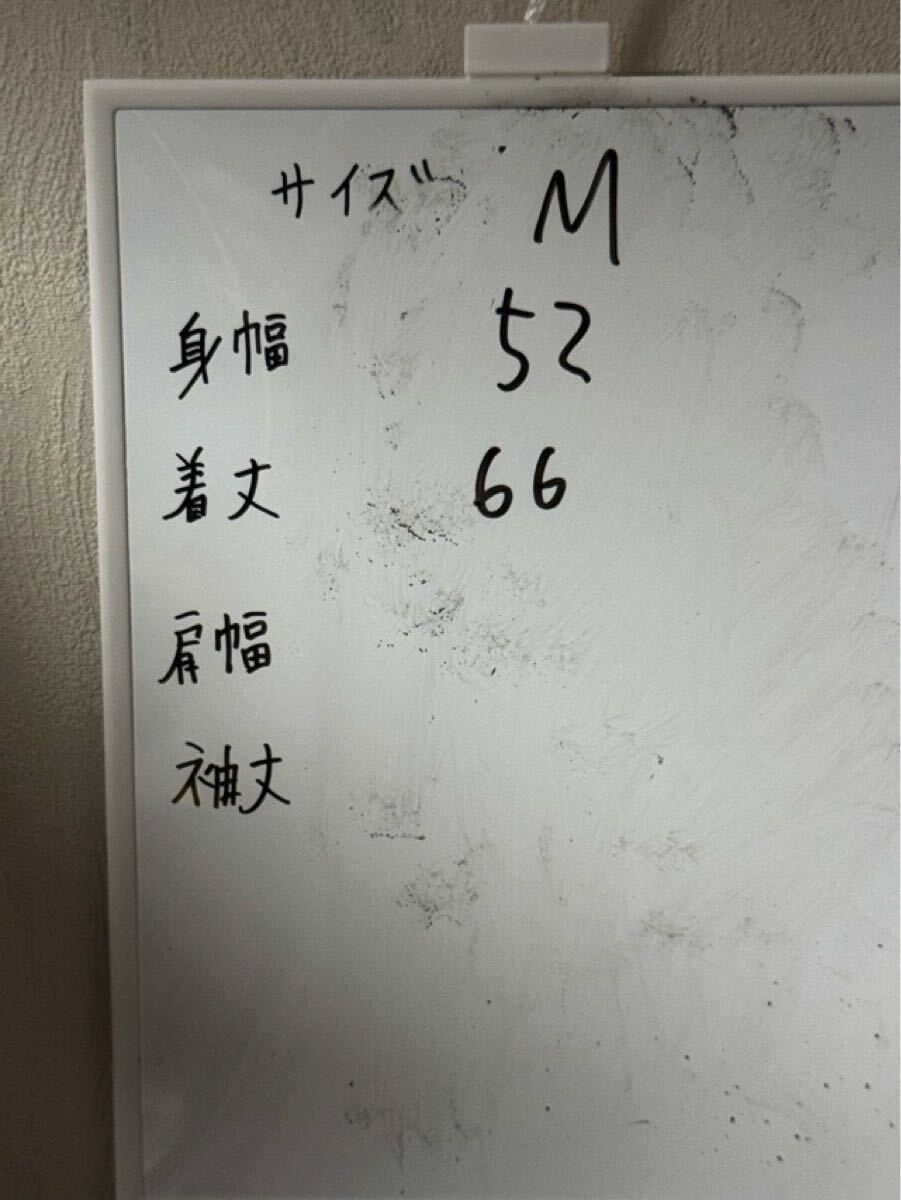 サイズ M
身幅 52
着丈 66
肩幅
袖丈